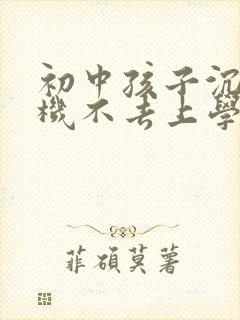 初中孩子沉
機不去上學
菲碩莫薯